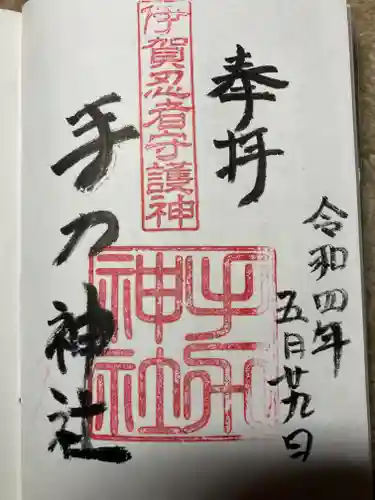 奉拝
令和四年
五月廿九日
伊賀忍者守護神
手力神社
手力神社